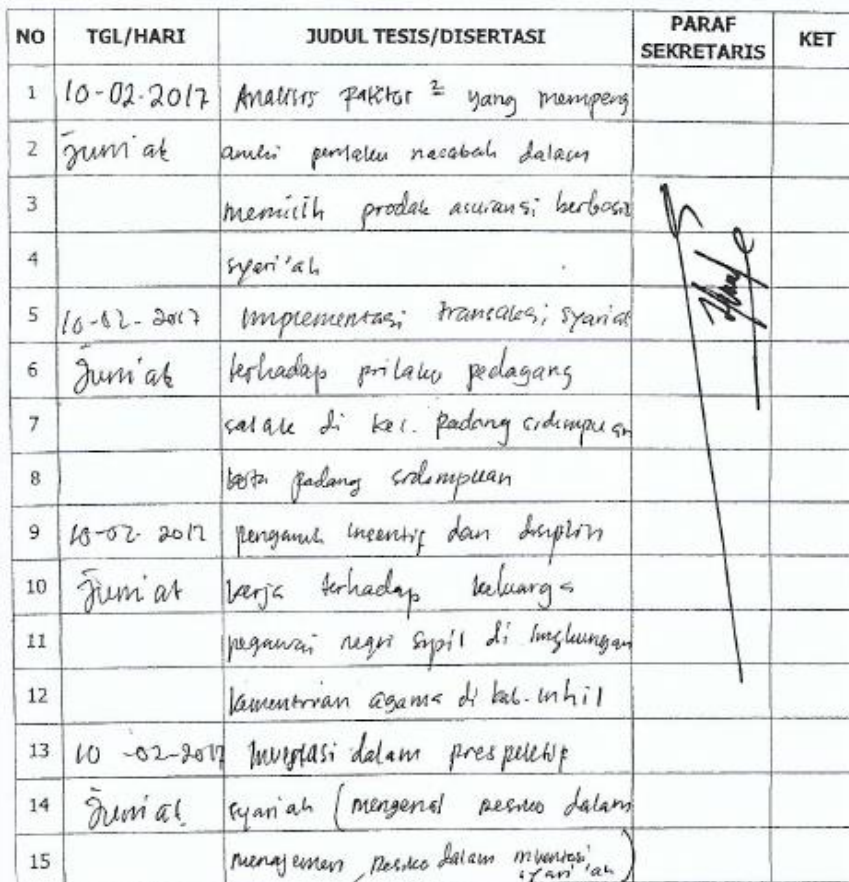 NO TGL/HARI JUDUL TESIS/DISERTASI PARAF SEKRETARIS KET
1 10-02-2017 Analisis Faktor ² yang mempeng
2 Jum'at aruhi perilaku nasabah dalam
3 memilih produk asuransi berbasis
4 syari'ah
5 10-02-2017 Implementasi transaksi syariah
6 Jum'at terhadap prilaku pedagang
7 salak di kec. Padang sidimpuan
8 kota padang sidempuan
9 10-02-2017 pengaruh insentif dan disiplin
10 Jum'at kerja terhadap keluarga
11 pegawai negri sipil di lingkungan
12 kementrian agama di kab. inhil
13 10-02-2017 Investasi dalam prespektif
14 Jum'at syariah (mengenal resiko dalam
15 menajemen resiko dalam investasi syari'ah)